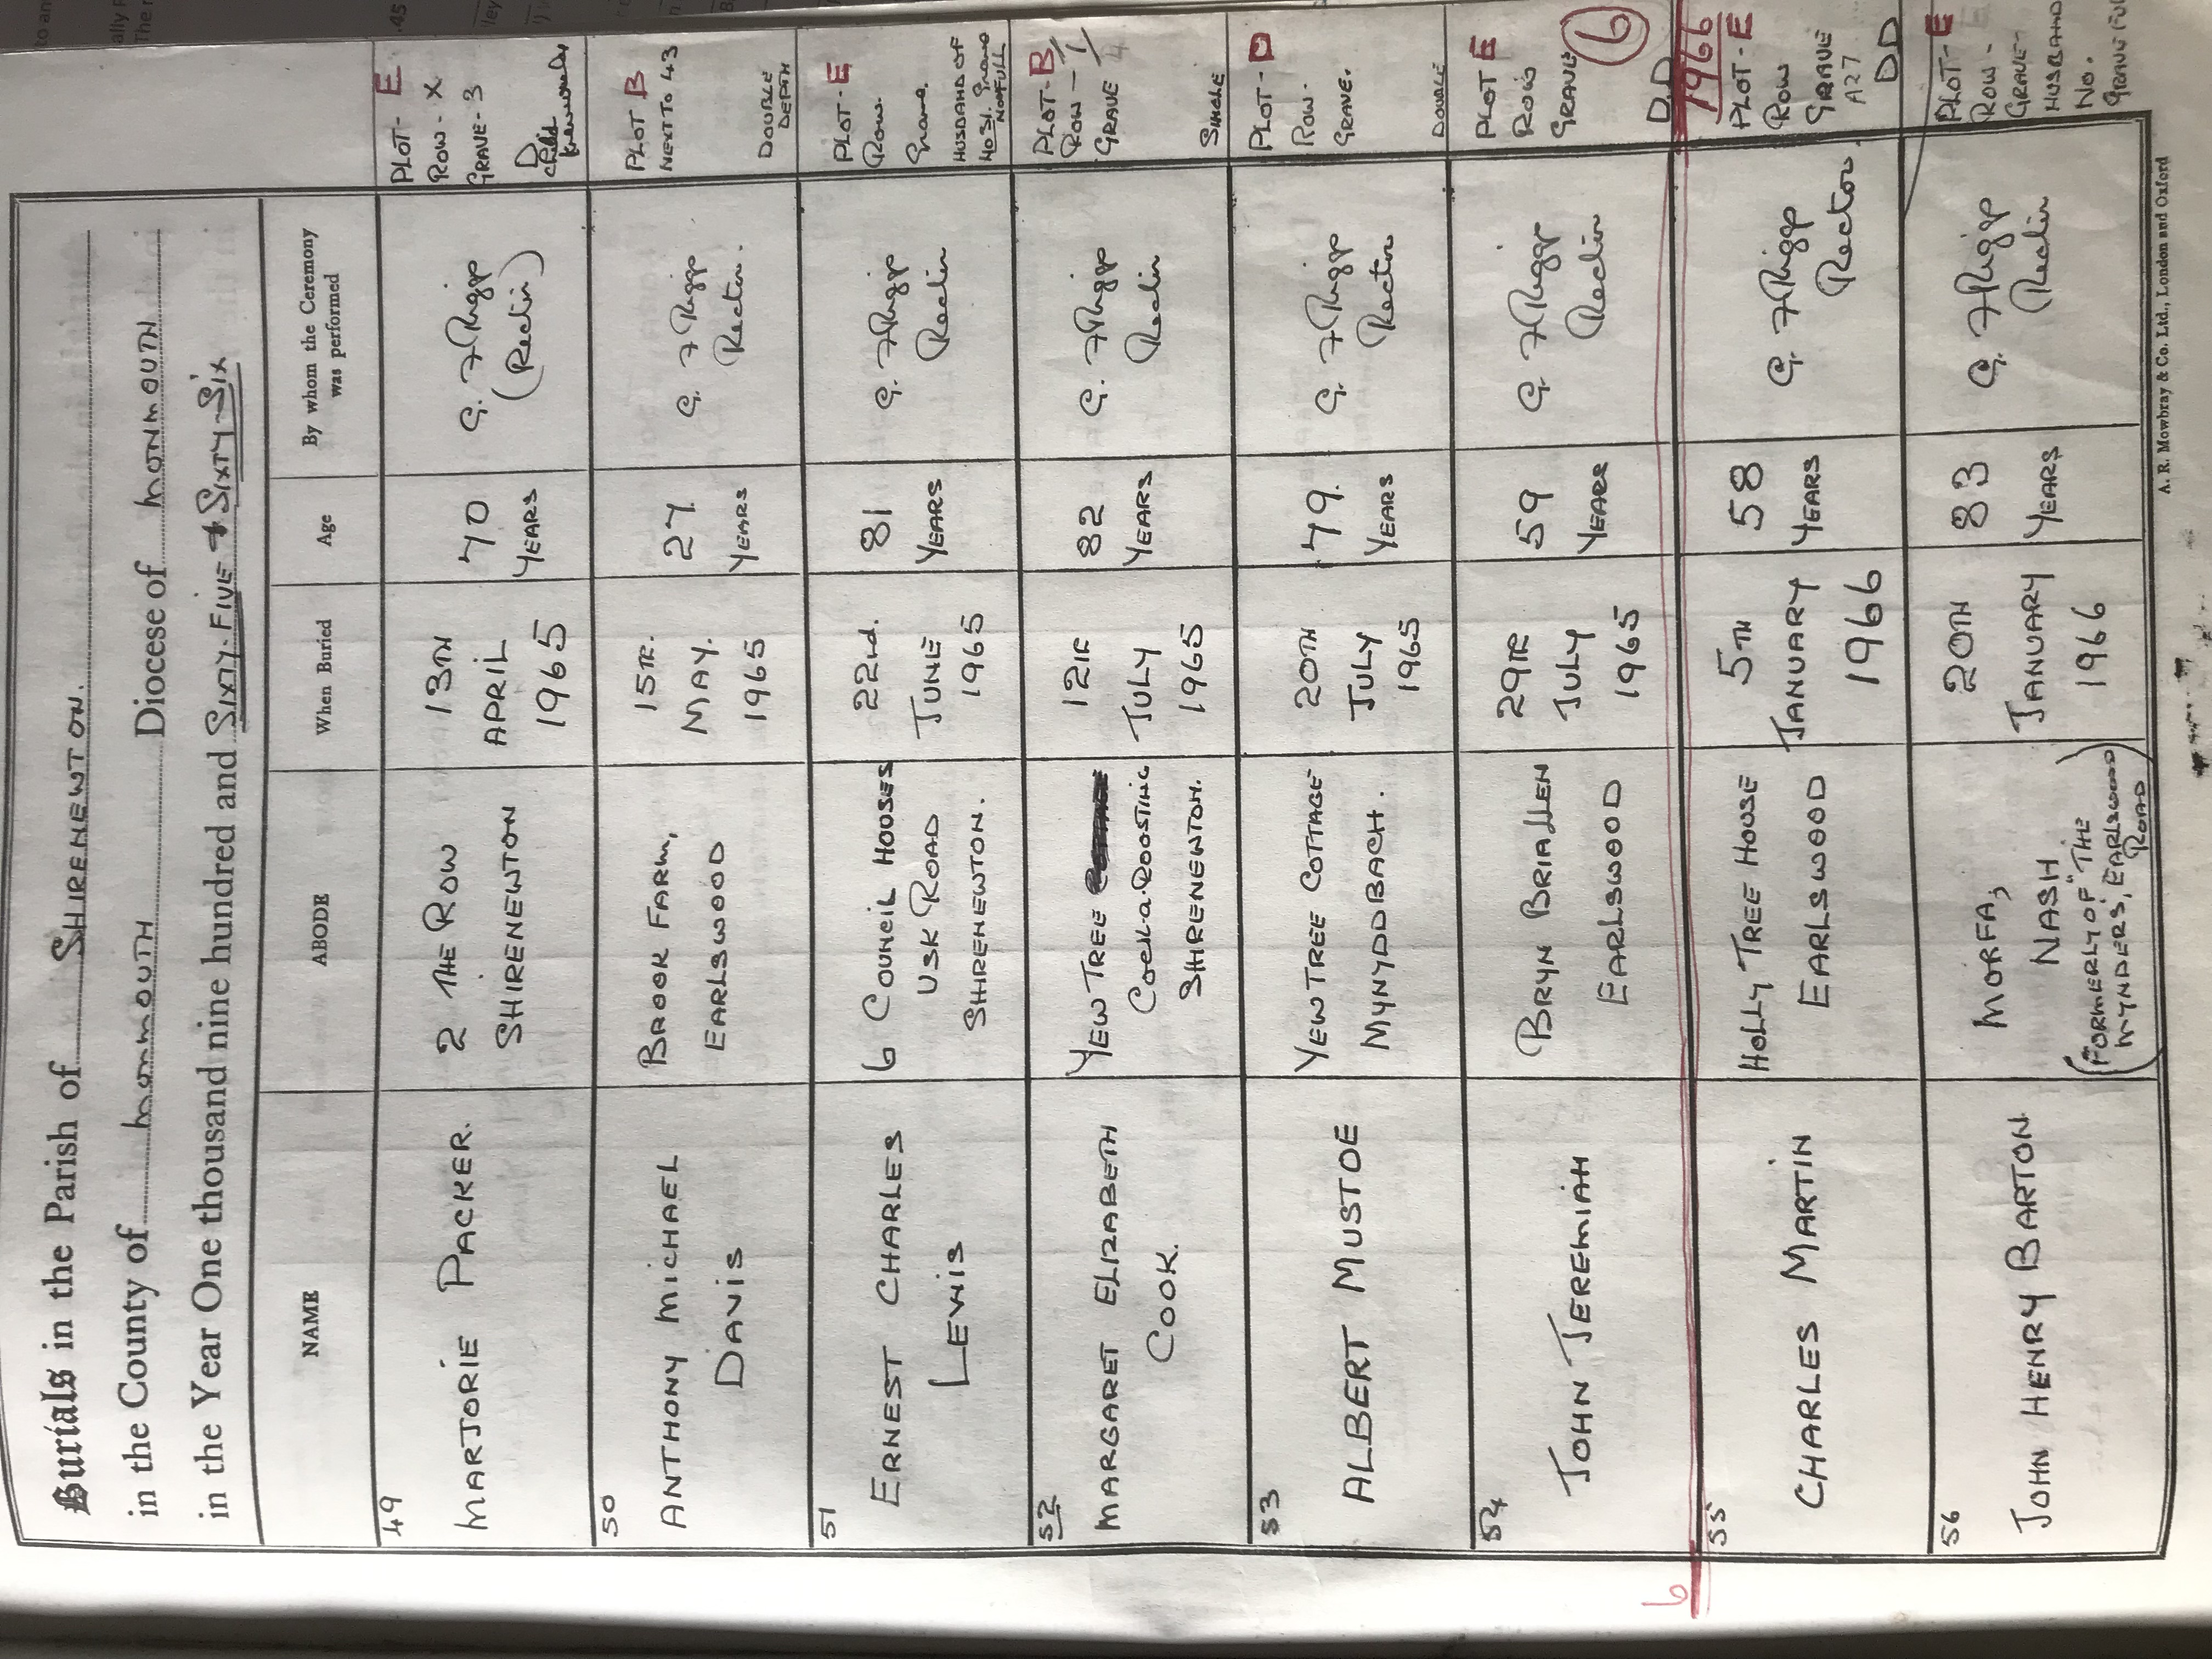 Burials in the Parish of SHIRENEWTON.
in the County of MONMOUTH Diocese of MONMOUTH
in the Year One thousand nine hundred and SIXTY-FIVE & SIXTY-SIX
NAME ABODE When Buried Age By whom the Ceremony was performed
49
MARJORIE PACKER.
2 THE ROW
SHIRENEWTON
13TH
APRIL
1965
70
YEARS
(Rector)
PLOT - E
ROW - X
GRAVE - 3
D
50
ANTHONY MICHAEL
DAVIS
BROOK FARM,
EARLSWOOD
15TH.
MAY.
1965
27
YEARS
Rector.
PLOT B
NEXT TO 43
DOUBLE
DEPTH
51
ERNEST CHARLES
LEWIS
6 COUNCIL HOUSES
USK ROAD
SHIRENEWTON.
22nd.
JUNE
1965
81
YEARS
Rector
PLOT - E
Row.
Grave.
HUSBAND OF
NO 31. Grave
NOW FULL
52
MARGARET ELIZABETH
COOK.
YEW TREE
SHIRENEWTON.
12TH
JULY
1965
82
YEARS
Rector
PLOT - B
ROW - 1
GRAVE 4
SINGLE
53
ALBERT MUSTOE
YEW TREE COTTAGE
MYNYDDBACH.
20TH
JULY
1965
79.
YEARS
Rector
PLOT - D
ROW -
GRAVE.
DOUBLE
54
JOHN JEREMIAH
BRYN BRIALLEN
EARLSWOOD
29TH
JULY
1965
59
YEARS
Rector
PLOT E
ROW
GRAVE
6
D.D
6
1966
55
CHARLES MARTIN
HOLLY TREE HOUSE
EARLSWOOD
5TH
JANUARY
1966
58
YEARS
Rector.
PLOT - E
ROW
GRAVE
A27
DD
56
JOHN HENRY BARTON
MORFA,
NASH
(FORMERLY OF "THE
MYNDERS", EARLSWOOD
ROAD)
20TH
JANUARY
1966
83
YEARS
Rector
PLOT - E
ROW -
GRAVE -
HUSBAND
No.
GRAVE FULL
A. R. Mowbray & Co. Ltd., London and Oxford